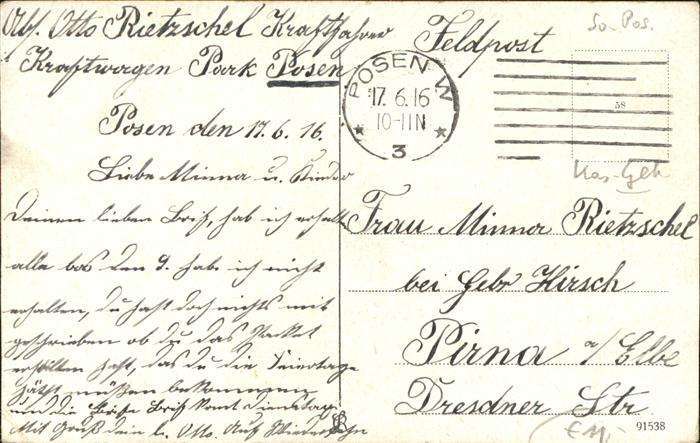 Abs. Otto Rietzschel Kraftfahrer
Kraftwagen Park Posen
Feldpost
So-Pos.
POSEN W
17.6.16
10-11N
* 3 *
58
Posen den 17.6.16.
Liebe Minna u. Kinder
Deinen lieben Brief, hab ich erhalten
alle bos den 9. hab ich nicht
erhalten, du hast doch nichts mit
geschrieben ob du das Packet
erhalten hast, das du die Feiertage
hätst müßen bekommen
und die Brief kommt Dienstag
Mit Gruß dein l. Otto. Auf Wiedersehn
Frau Minna Rietzschel
bei Gebr Hirsch
Pirna a/Elbe
Dresdner Str
91538